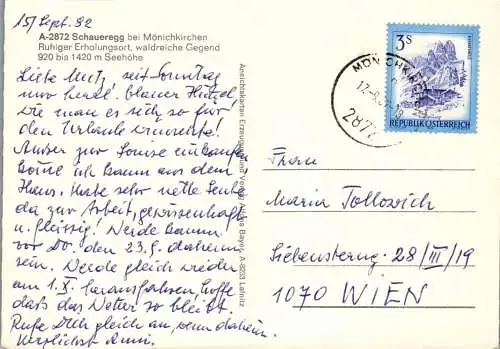 15/ Sept. 82
A-2872 Schaueregg bei Mönichkirchen
Ruhiger Erholungsort, waldreiche Gegend
920 bis 1420 m Seehöhe
Liebe Mutz seit Sonntag
nur herrl. blauer Himmel
Wie man es sich so für
den Urlaub wünscht!
Außer zur Sonne einkaufen
komme ich kaum aus dem
Haus. Habe sehr nette Leute
da zur Arbeit, gewissenhaft
u. fleissig! Werde kaum
vor Do. den 23.9. daheim
sein. Werde gleich wieder
am 1.X. herausfahren, hoffe
daß das Wetter so bleibt.
Rufe Dich gleich an, wenn daheim.
Herzlichst Anni.
Ansichtskarten Erzeugung und Verlag Alois Bayer, A-8253 Lafnitz
3S
REPUBLIK ÖSTERREICH
MÖNICHKIRCHEN
2872
Maria Tollowich
Siebensterng. 28/III/19
1070 WIEN